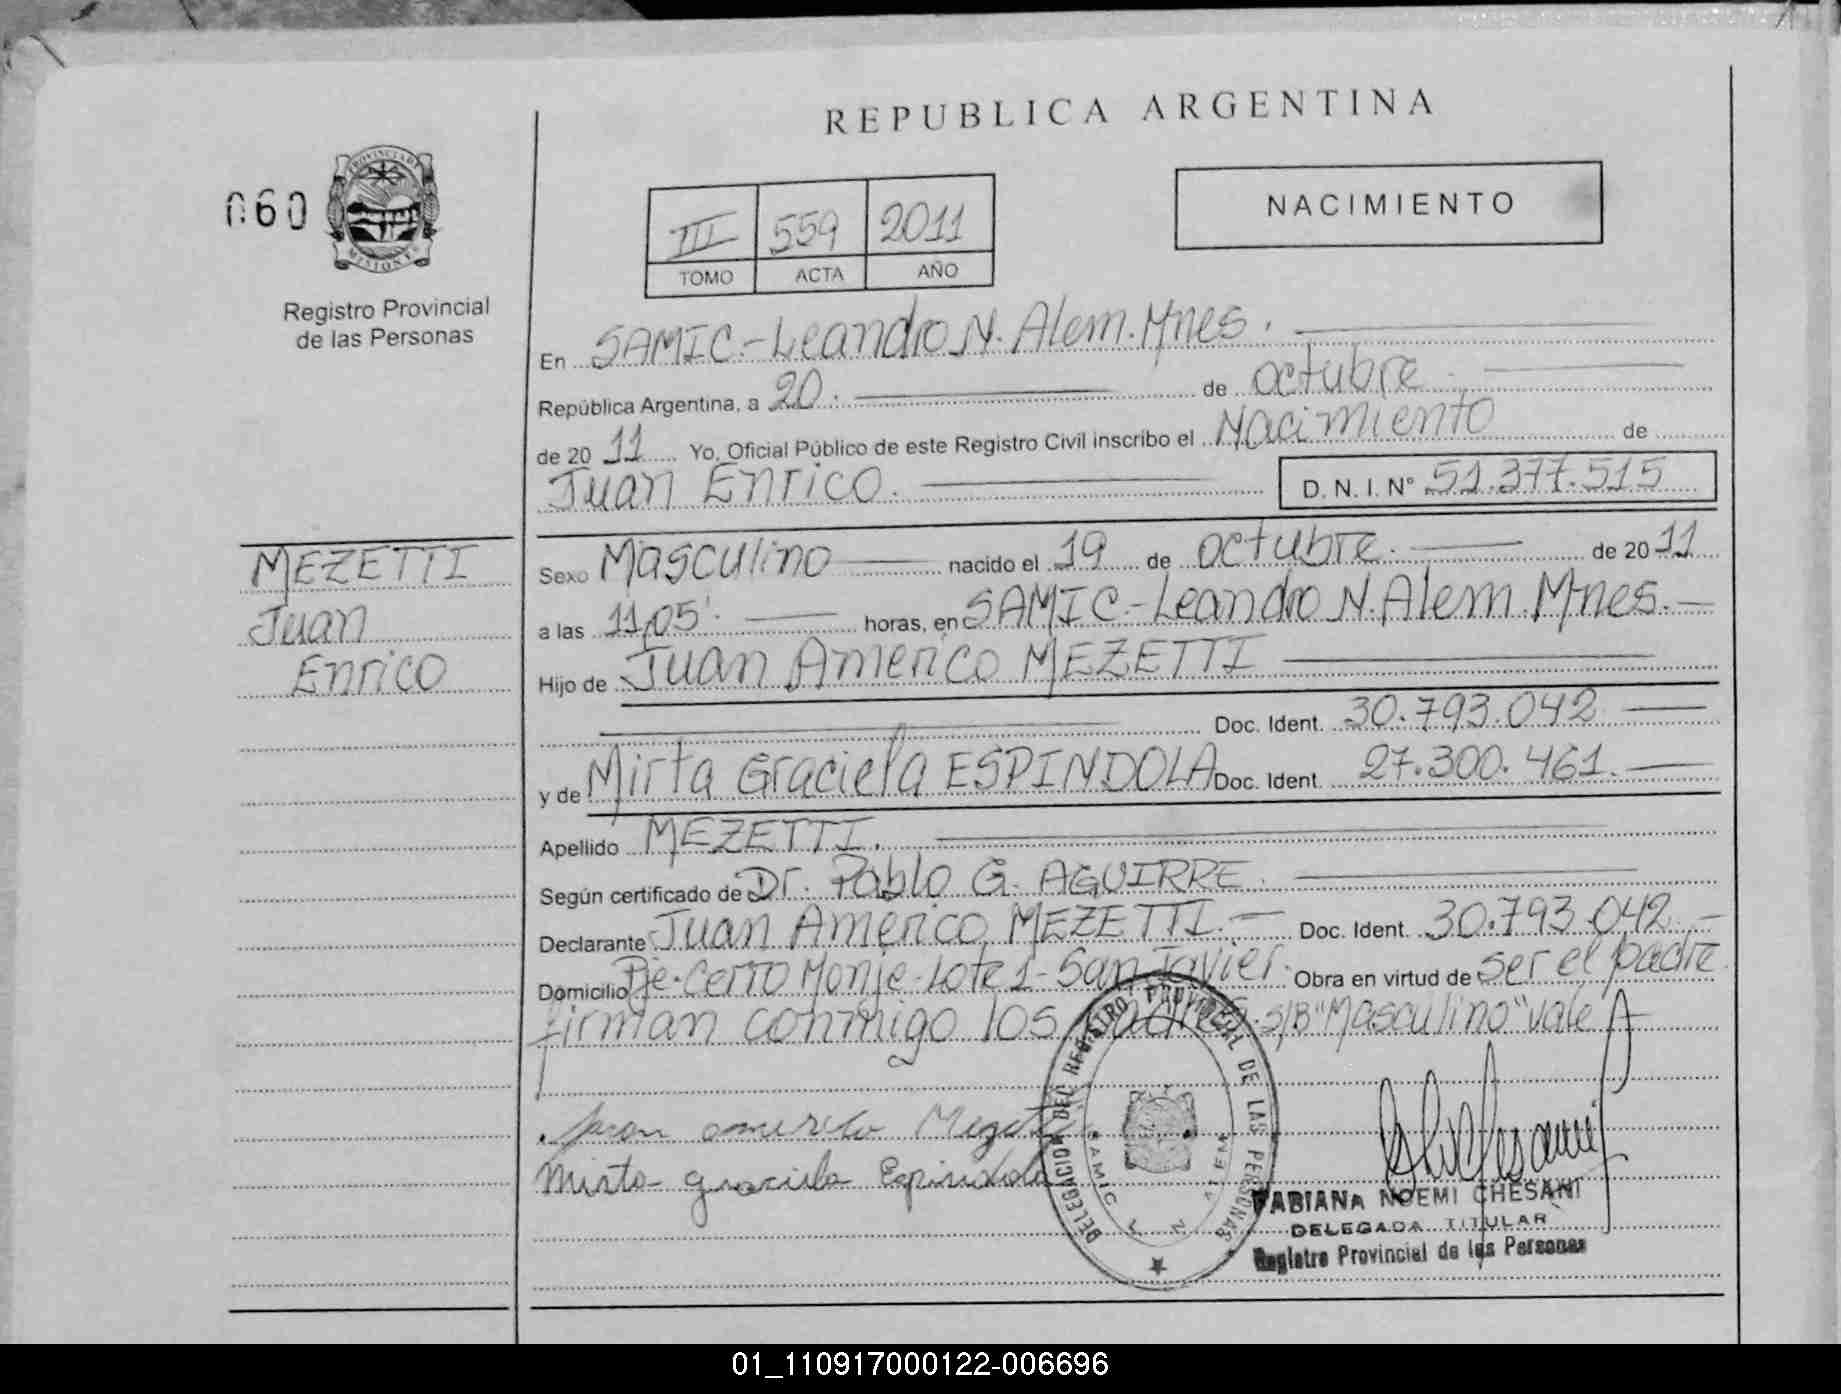 REPUBLICA ARGENTINA
060
PROVINCIA DE
MISIONES
Registro Provincial
de las Personas
III 559 2011
TOMO ACTA AÑO
NACIMIENTO
En SAMIC.-Leandro N. Alem. Mnes.
República Argentina, a 20. de octubre.
de 20 11 Yo, Oficial Público de este Registro Civil inscribo el Nacimiento de
Juan Enrico. D. N. I. Nº 51.377.515
MEZETTI
Juan
Enrico
Sexo Masculino nacido el 19 de octubre. de 20 11
a las 11,05'. horas, en SAMIC.-Leandro N. Alem. Mnes.-
Hijo de Juan Americo MEZETTI
Doc. Ident. 30.793.042
y de Mirta Graciela ESPINDOLA Doc. Ident. 27.300.461.
Apellido MEZETTI.
Según certificado de Dr. Pablo G. AGUIRRE.
Declarante Juan Americo MEZETTI.- Doc. Ident. 30.793.042.-
Domicilio Pje. Cerro Monje-Lote 1-San Javier. Obra en virtud de ser el padre
firman conmigo los padres. S/B "Masculino" vale
Juan americo Mezetti
Mirta graciela Espindola
DELEGACION DEL REGISTRO PROVINCIAL DE LAS PERSONAS
SAMIC L N ALEM
FABIANA NOEMI CHESANI
DELEGADA TITULAR
Registro Provincial de las Personas
01_110917000122-006696